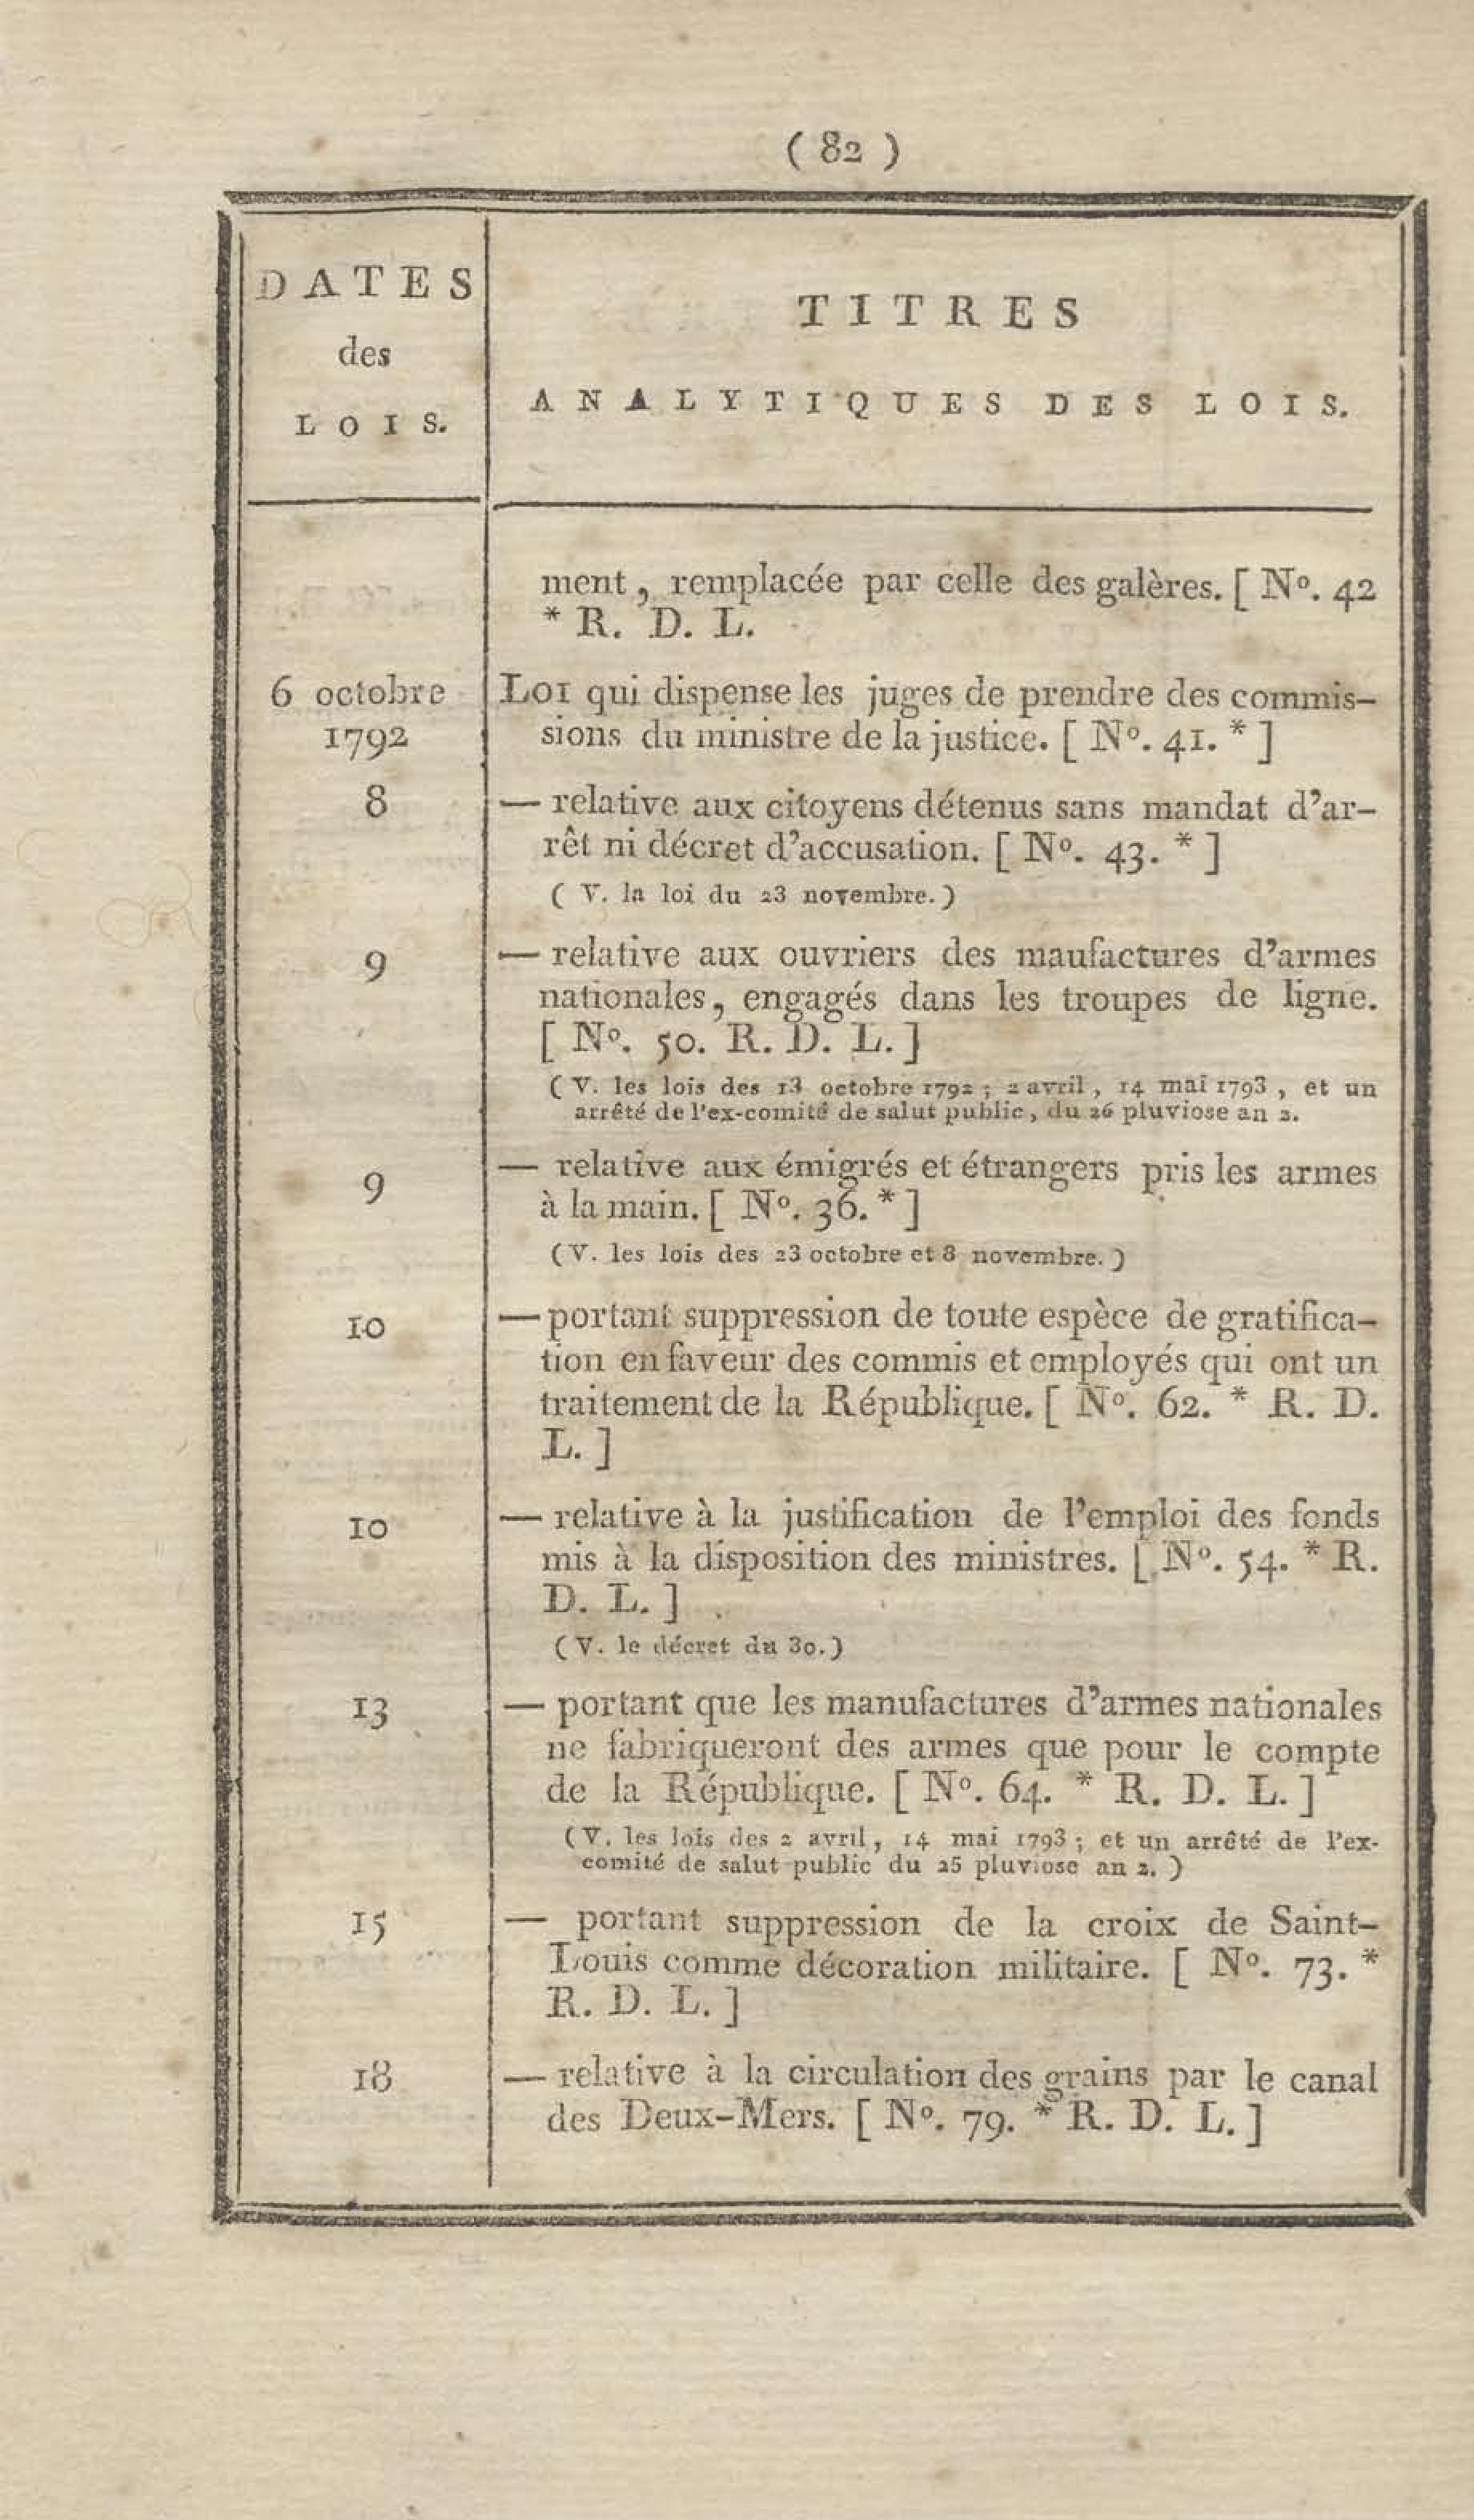 ( 82 )
DATES
des
LOIS.
TITRES
ANALYTIQUES DES LOIS.
ment, remplacée par celle des galères. [ Nº. 42
* R. D. L.
6 octobre
1792
Loi qui dispense les juges de prendre des commis-
sions du ministre de la justice. [ Nº. 41. * ]
8
— relative aux citoyens détenus sans mandat d'ar-
rêt ni décret d'accusation. [ Nº. 43. * ]
( V. la loi du 23 novembre. )
9
— relative aux ouvriers des maufactures d'armes
nationales, engagés dans les troupes de ligne.
[ Nº. 50. R. D. L. ]
( V. les lois des 13 octobre 1792 ; 2 avril, 14 mai 1793, et un
arrêté de l'ex-comité de salut public, du 26 pluviose an 2.
9
— relative aux émigrés et étrangers pris les armes
à la main. [ Nº. 36. * ]
( V. les lois des 23 octobre et 8 novembre. )
10
— portant suppression de toute espèce de gratifica-
tion en faveur des commis et employés qui ont un
traitement de la République. [ Nº. 62. * R. D.
L. ]
10
— relative à la justification de l'emploi des fonds
mis à la disposition des ministres. [ Nº. 54. * R.
D. L. ]
( V. le décret du 30. )
13
— portant que les manufactures d'armes nationales
ne fabriqueront des armes que pour le compte
de la République. [ Nº. 64. * R. D. L. ]
( V. les lois des 2 avril, 14 mai 1793 ; et un arrêté de l'ex-
comité de salut public du 25 pluviose an 2. )
15
— portant suppression de la croix de Saint-
Louis comme décoration militaire. [ Nº. 73. *
R. D. L. ]
18
— relative à la circulation des grains par le canal
des Deux-Mers. [ Nº. 79. * R. D. L. ]